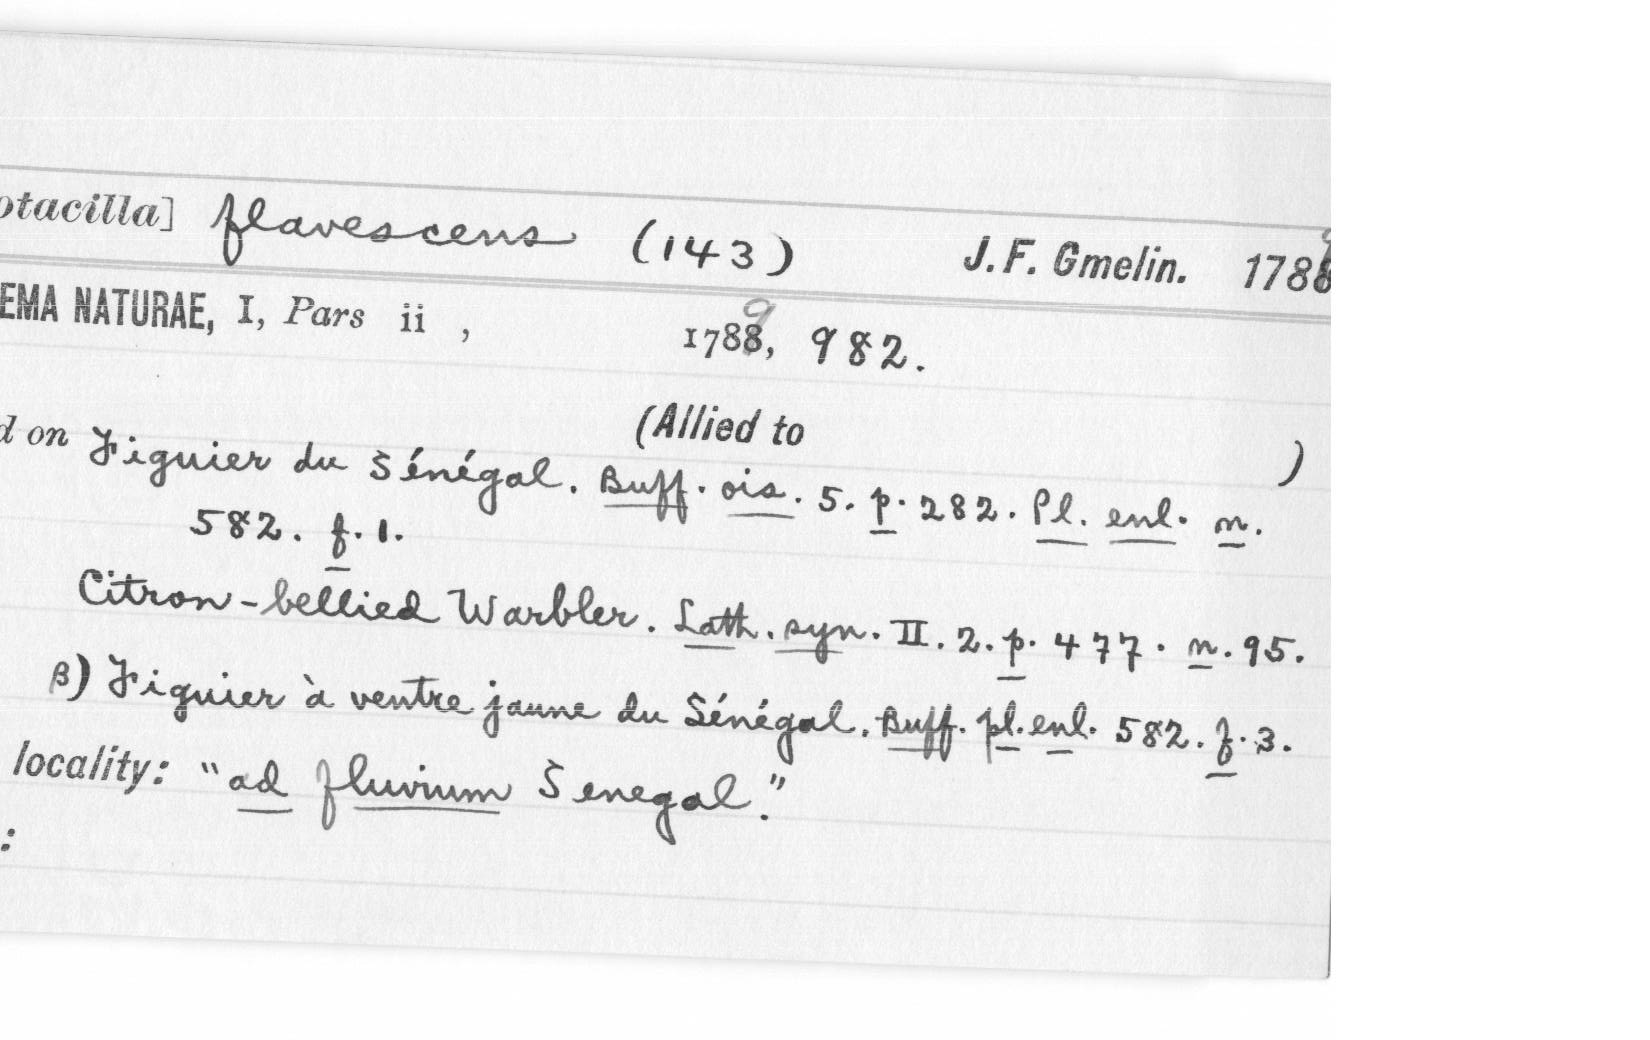 otacilla] flavescens (143) J. F. Gmelin. 1789
EMA NATURAE, I, Pars ii , 1789, 982.
(Allied to )
d on Figuier du Sénégal. Buff. ois. 5. p. 282. Pl. enl. n.
582. f. 1.
Citron-bellied Warbler. Lath. syn. II. 2. p. 477. n. 95.
β) Figuier à ventre jaune du Sénégal. Buff. pl. enl. 582. f. 3.
locality: "ad fluvium Senegal."
: